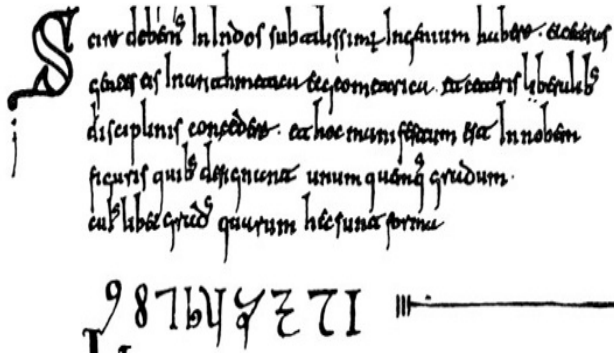 Scire debem⁹ In Indos subtilissimū Ingenium habere · et ceteras
gentes eis In arithmetica et geometrica · et ceteris liberalib⁹
disciplinis concedere · et hoc manifestum est In nobem
figuris quib⁹ designant unum quēq⁹ gradum ·
cui⁹libet grad⁹ quarum hec sunt forma
9 8 7 6 5 4 3 2 1